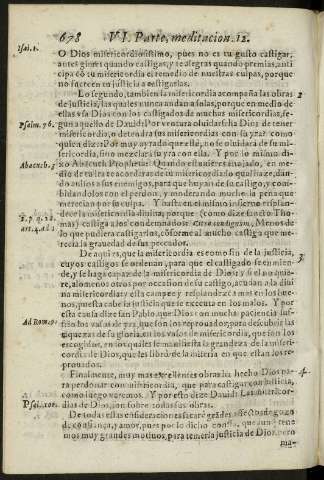 678 VI. Parte, meditacion. 12.
Isai. 1.
O Dios misericordiosissimo, pues no es tu gusto castigar,
antes gimes quando castigas, y te alegras quando premias, anti
cipa cõ tu misericordia el remedio de nuestras culpas, porque
no fuercen tu justicia a castigarlas.
Lo segundo, tambien la misericordia acompaña las obras
2
de justicia, las quales nunca andan solas, porque en medio de
ellas vsa Dios con los castigados de muchas misericordias, se-
Psalm. 76.
gun aquello de Dauid: Por ventura oluidarse ha Dios de tener
misericordia, o detendra sus misericordias con su yra? como
quien dize: Por muy ayrado que estè, no se oluidarà de su mi-
sericordia, sino mezclarà su yra con ella. Y por lo mismo di-
Abacuch. 3
xo Abacuch Propheta: Quando estuuieres enojado, en me-
dio de tu ira te acordaràs de tu misericordia
dando animo a sus enemigos, para que huyan del castigo, y com-
bidandolos con el perdon, y moderando mucho la pena que
merecian por su culpa. Y hasta en el mismo infierno resplan-
dece la misericordia diuina, porque (como dize sancto Tho-
1. p. q. 21.
art. 4. ad 1
mas) castiga a los condenados Citra condignum, Menos de
lo que pudiera castigarlos, cõforme al mucho castigo que me-
recia la grauedad de sus peccados.
De aqui es, que la misericordia es como fin de la justicia,
3
cuyos castigos se ordenan, para que el castigado se enmien-
de, y se haga capaz de la misericordia de Dios: y si el no quie-
re, alomenos otros por occasion de su castigo, acudan a la diui
na misericordia: y ella campee y resplandezca mas en los bue-
nos, puesta cabe la justicia que se executa en los malos. Y por
Ad Rom. 9.
esta causa dize san Pablo, que Dios con mucha paciencia suf-
frio los vasos de yra, que son los reprouados, para descubrir las
riquezas de su gloria, en los vasos de misericordia, que son los
escogidos, en los quales se manifiesta la grandeza de la miseri-
cordia de Dios, que los librò de la miseria en que estan los re-
prouados.
Finalmente, muy mas excellentes obras ha hecho Dios pa-
4
ra perdonar con misericordia, que para castigar con justicia,
como luego veremos. Y por esto dize Dauid: Las misericor-
Psal. 144.
dias de Dios, son sobre todas sus obras.
De todas estas consideraciones sacarè grãdes affectos de gozo
de confiança, y amor, pues por lo dicho consta, que aun tene
mos muy grandes motiuos, para temer la justicia de Dios, pero